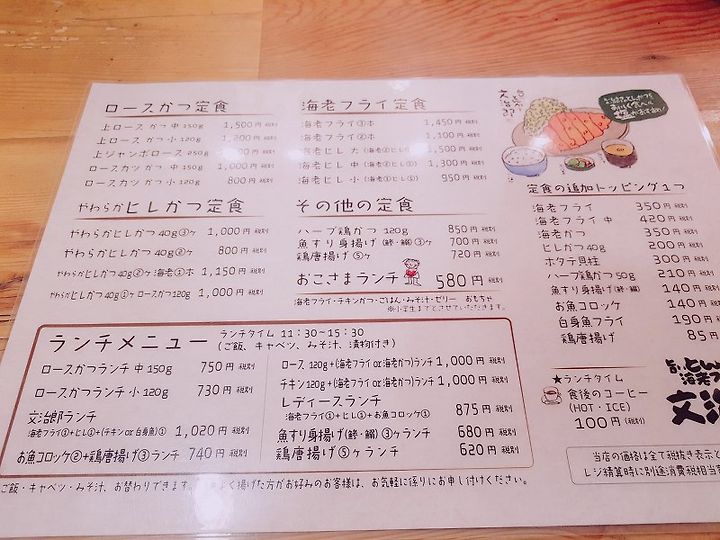 ロースかつ定食
上ロースかつ 中 150g 1,500円 税別
上ロースかつ 小 120g 1,200円 税別
上ジャンボロース 250g 円 税別
ロースカツかつ 中 150g 1,000円 税別
ロースカツかつ 小 120g 800円 税別
やわらかヒレかつ定食
やわらかヒレかつ 40g③ヶ 1,000円 税別
やわらかヒレかつ 40g②ヶ 800円 税別
やわらかヒレかつ 40g②ヶ 海老①本 1,150円 税別
やわらかヒレかつ 40g①ヶ ロースかつ120g 1,000円 税別
海老フライ定食
海老フライ③本 1,450円 税別
海老フライ②本 1,100円 税別
海老ヒレ 大 1,500円 税別
海老ヒレ 中 1,300円 税別
海老ヒレ 小 (海老①ヒレ①) 950円 税別
その他の定食
ハーブ鶏かつ 120g 850円 税別
魚すり身揚げ(鯵・鰯)③ヶ 700円 税別
鶏唐揚げ⑤ヶ 720円 税別
おこさまランチ 580円 税別
海老フライ・チキンかつ・ごはん・みそ汁・ゼリー おもちゃ
※小学生までとさせていただきます。
文治郎
定食の追加トッピング1つ
海老フライ 350円 税別
海老フライ 中 420円 税別
海老かつ 350円 税別
ヒレかつ 40g 200円 税別
ホタテ貝柱 300円 税別
ハーブ鶏かつ 50g 210円 税別
魚すり身揚げ(鯵・鰯) 140円 税別
お魚コロッケ 140円 税別
白身魚フライ 190円 税別
鶏唐揚げ 85円 税別
★ランチタイム
食後のコーヒー
(HOT・ICE)
100円(税別)
ランチメニュー ランチタイム 11:30~15:30
(ご飯、キャベツ、みそ汁、漬物付き)
ロースかつランチ 中 150g 750円 税別
ロースかつランチ 小 120g 730円 税別
文治郎ランチ
海老フライ①+ヒレ①+(チキン or 白身魚)① 1,020円 税別
お魚コロッケ②+鶏唐揚げ③ランチ 740円 税別
ロース 120g+(海老フライ or 海老かつ)ランチ 1,000円 税別
チキン 120g+(海老フライ or 海老かつ)ランチ 1,000円 税別
レディースランチ
海老フライ①+ヒレ①+お魚コロッケ① 875円 税別
魚すり身揚げ(鯵・鰯)③ヶランチ 680円 税別
鶏唐揚げ⑤ヶランチ 620円 税別
旨い、とん
海老フ
文治
当店の価格は全て税抜き表示と
レジ精算時に別途消費税相当
ご飯・キャベツ・みそ汁、お替わりできます。 よく揚げた方がお好みのお客様は、お気軽に係りにお申し付けください。